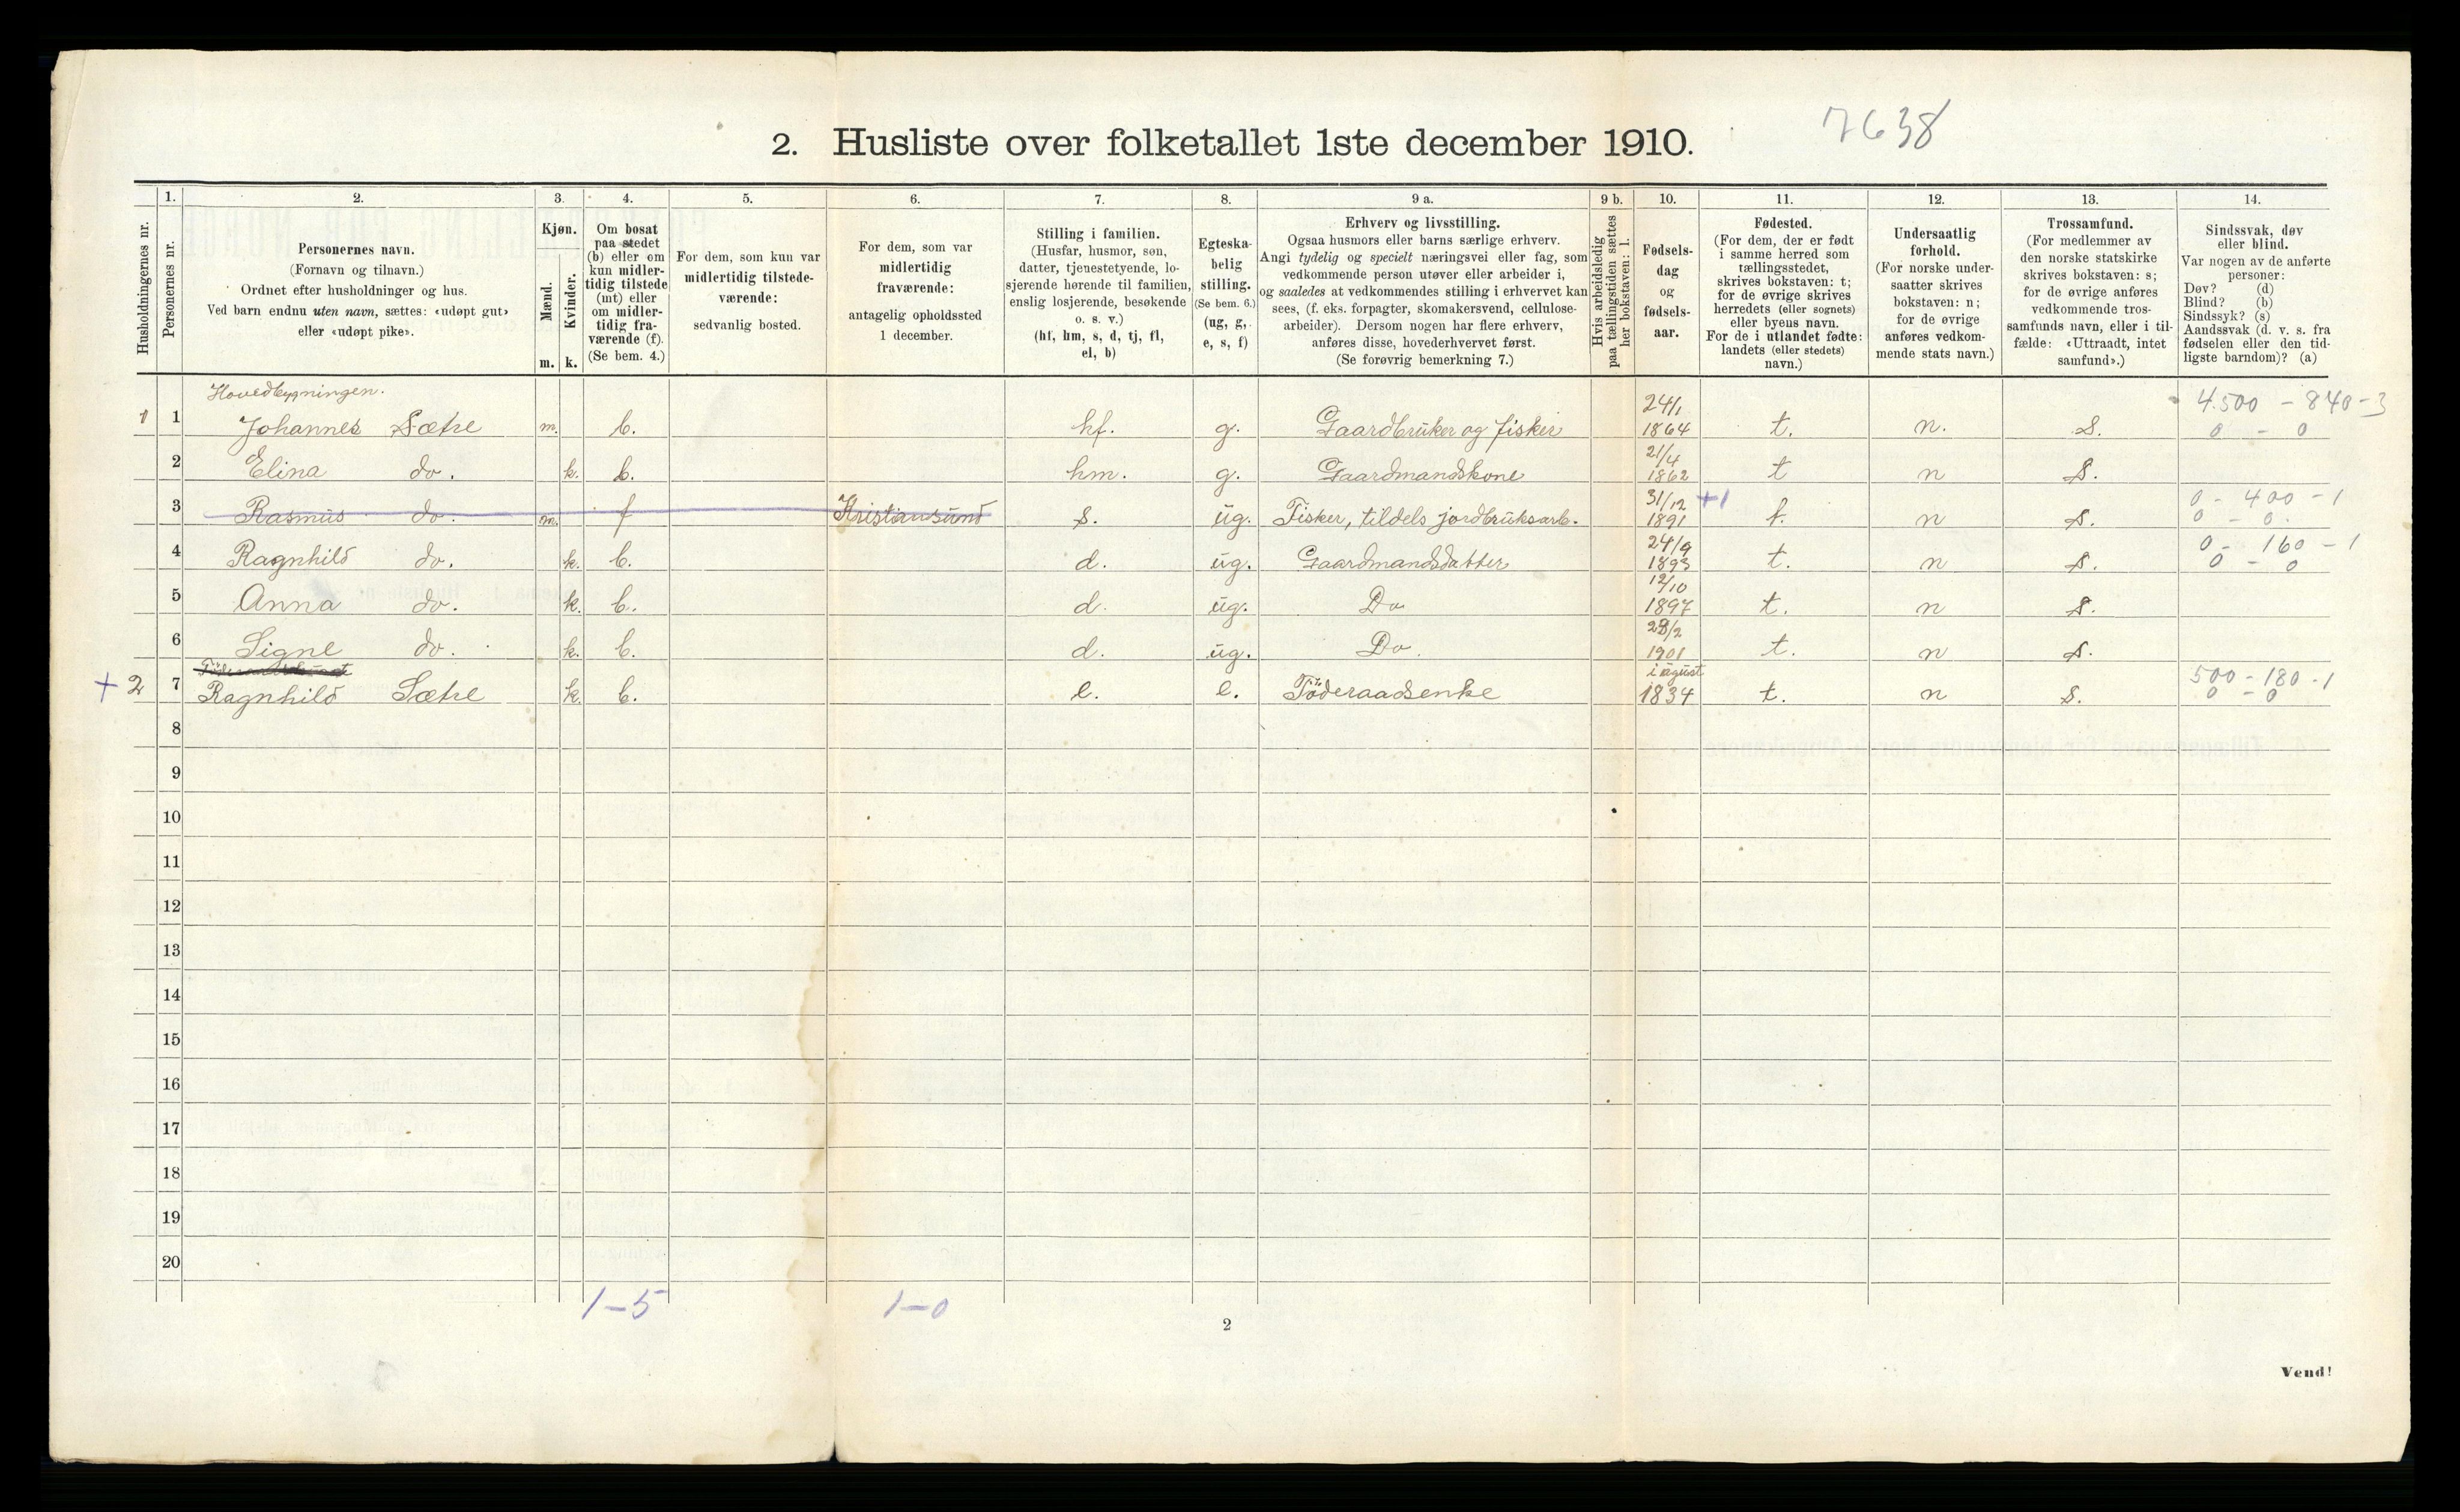 2. Husliste over folketallet 1ste december 1910.
7638
Husholdningernes nr.
1.
Personernes nr.
2.
Personernes navn.
(Fornavn og tilnavn.)
Ordnet efter husholdninger og hus.
Ved barn endnu uten navn, sættes: «udøpt gut»
eller «udøpt pike».
3.
Kjøn.
Mænd.
Kvinder.
m. k.
4.
Om bosat
paa stedet
(b) eller om
kun midler-
tidig tilstede
(mt) eller
om midler-
tidig fra-
værende (f).
(Se bem. 4.)
5.
For dem, som kun var
midlertidig tilstede-
værende:
sedvanlig bosted.
6.
For dem, som var
midlertidig
fraværende:
antagelig opholdssted
1 december.
7.
Stilling i familien.
(Husfar, husmor, søn,
datter, tjenestetyende, lo-
sjerende hørende til familien,
enslig losjerende, besøkende
o. s. v.)
(hf, hm, s, d, tj, fl,
el, b)
8.
Egteska-
belig
stilling.
(Se bem. 6.)
(ug, g,
e, s, f)
9 a.
Erhverv og livsstilling.
Ogsaa husmors eller barns særlige erhverv.
Angi tydelig og specielt næringsvei eller fag, som
vedkommende person utøver eller arbeider i,
og saaledes at vedkommendes stilling i erhvervet kan
sees, (f. eks. forpagter, skomakersvend, cellulose-
arbeider). Dersom nogen har flere erhverv,
anføres disse, hovederhvervet først.
(Se forøvrig bemerkning 7.)
9 b.
Hvis arbeidsledig
paa tællingstiden sættes
her bokstaven: l.
10.
Fødsels-
dag
og
fødsels-
aar.
11.
Fødested.
(For dem, der er født
i samme herred som
tællingsstedet,
skrives bokstaven: t;
for de øvrige skrives
herredets (eller sognets)
eller byens navn.
For de i utlandet fødte:
landets (eller stedets)
navn.)
12.
Undersaatlig
forhold.
(For norske under-
saatter skrives
bokstaven: n;
for de øvrige
anføres vedkom-
mende stats navn.)
13.
Trossamfund.
(For medlemmer av
den norske statskirke
skrives bokstaven: s;
for de øvrige anføres
vedkommende tros-
samfunds navn, eller i til-
fælde: «Uttraadt, intet
samfund».)
14.
Sindssvak, døv
eller blind.
Var nogen av de anførte
personer:
Døv? (d)
Blind? (b)
Sindssyk? (s)
Aandssvak (d. v. s. fra
fødselen eller den tid-
ligste barndom)? (a)
Hovedbygningen.
1 1 Johannes Sætre m. b. hf. g. Gaardbruker og fisker 24/1 1864 t. n. s. 4.500 - 840 - 3
0 - 0
2 Elina do. k. b. hm. g. Gaardmandskone 21/4 1862 t n s.
3 Rasmus do. m. f Kristiansund s. ug. Fisker, tildels jordbruksarb. 31/12 1891 +1 t. n s. 0 - 400 - 1
0 - 0.
4 Ragnhild do. k. b. d. ug. Gaardmandsdatter 24/9 1893 t. n s. 0 - 160 - 1
0 - 0
5 Anna do. k. b. d. ug. Do 12/10 1897 t. n s.
6 Signe do. k. b. d. ug. Do. 28/2 1901 t. n s.
+ 2 7 Ragnhild Sætre k. b. e. e. Föderaadsenke i august 1834 t. n s. 500 - 180 - 1
0 - 0
8
9
10
11
12
13
14
15
16
17
18
19
20
1-5 1-0
2
Vend!